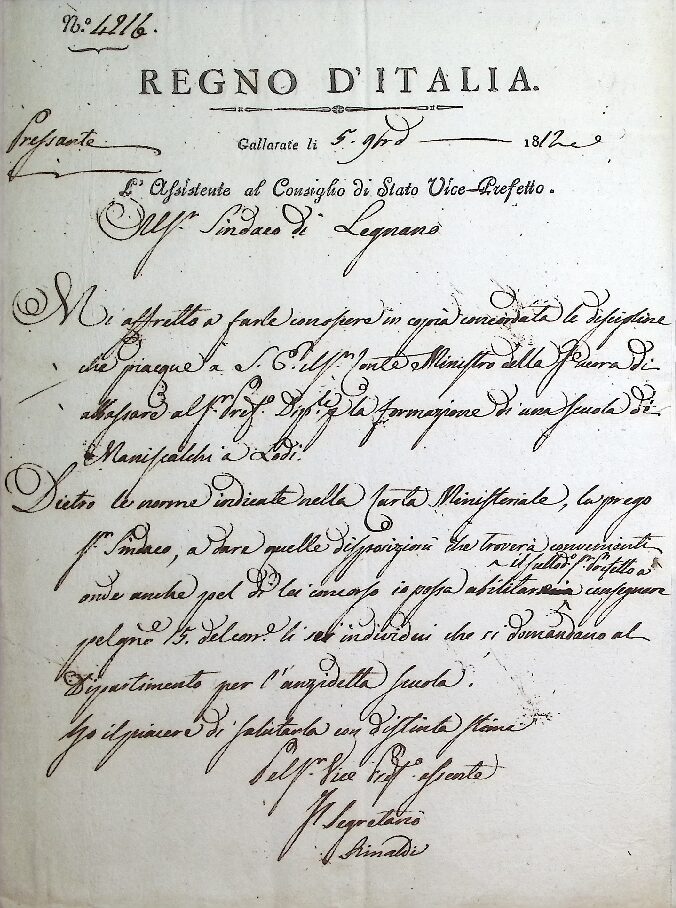 N.º 4216.
REGNO D'ITALIA.
Pressante
Gallarate li 5. 9brē 1812
L'Assistente al Consiglio di Stato Vice-Prefetto.
Al Sr. Sindaco di Legnano
Mi affretto a farle conoscere in copia concordata le discipline
che piacque a S. E. il Sr. Conte Ministro della Guerra di
abbassare al Sr. Pref.º Dip.le p. la formazione di una scuola di
Maniscalchi a Lodi.
Dietro le norme indicate nella Carta Ministeriale, la prego
Sr. Sindaco, a dare quelle disposizioni che troverà convenienti
il sullod.º Sr. Prefetto a
onde anche pel di lei concorso io possa abilitare consegnare
pel gno. 15. del corr.e li sei individui che si domandano al
Dipartimento per l'anzidetta scuola.
Ho il piacere di salutarla con distinta stima
Pel Sr. Vice Pref.º assente
Il Segretario
Rinaldi